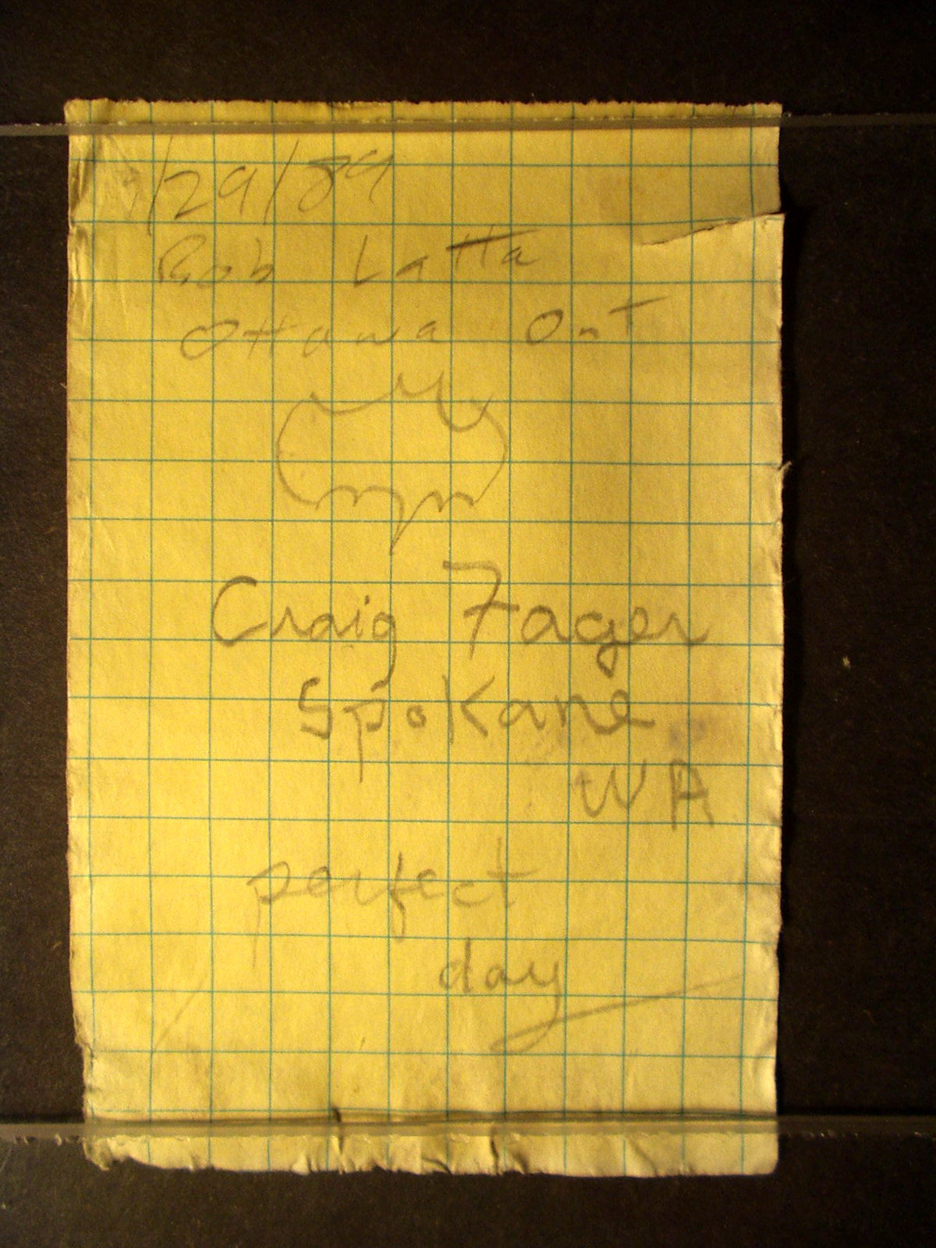 /29/89
Bob Latta
Ottawa Ont
Craig Fager
Spokane
WA
perfect
day